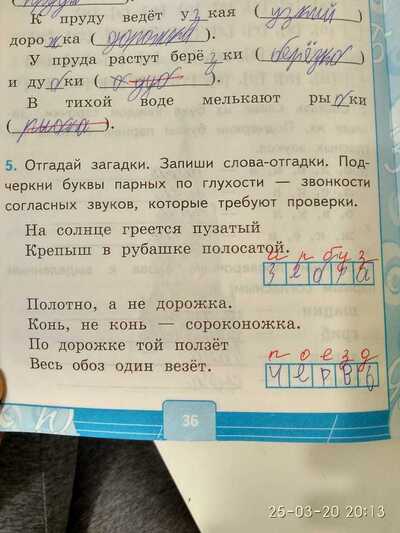 К пруду ведёт узкая (узкий)
дорожка (дорожка).
У пруда растут берёзки (берёзка)
и дубки (дуб).
В тихой воде мелькают рыбки
(рыба).
5. Отгадай загадки. Запиши слова-отгадки. Под-
черкни буквы парных по глухости — звонкости
согласных звуков, которые требуют проверки.
На солнце греется пузатый
Крепыш в рубашке полосатой.
арбуз
Полотно, а не дорожка.
Конь, не конь — сороконожка.
По дорожке той ползёт
Весь обоз один везёт.
поезд
червь
36
25-03-20 20:13